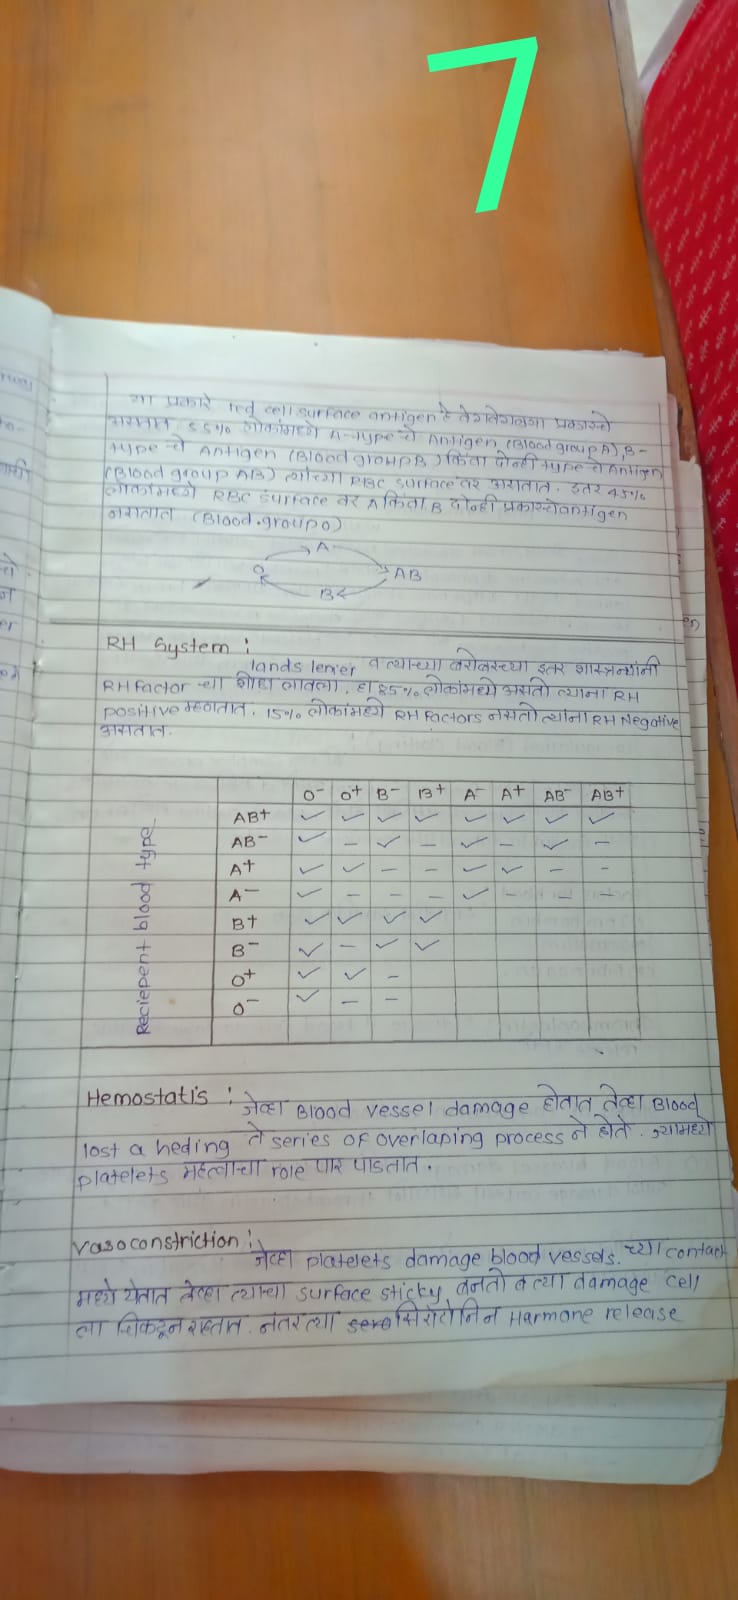 7
या प्रकारे red cell surface antigen हे वेगवेगळ्या प्रकारचे
असतात. 55% लोकांमध्ये A-type चे Antigen (Blood group A), B-
type चे Antigen (Blood group B) किंवा दोन्ही type चे Antigen
(Blood group AB) त्यांच्या RBC surface वर असतात. इतर 45%
लोकांमध्ये RBC surface वर A किंवा B दोन्ही प्रकारचे antigen
नसतात (Blood.group O)
A
O AB
B
RH System :
lands tenier व त्याच्या बरोबरच्या इतर शास्त्रज्ञांनी
RH factor चा शोध लावला. हा 85% लोकांमध्ये असतो त्यांना RH
positive म्हणतात. 15% लोकांमध्ये RH Factors नसतो त्यांना RH Negative
असतात.
O- O+ B- B+ A- A+ AB- AB+
Reciepent blood type
AB+ ✓ ✓ ✓ ✓ ✓ ✓ ✓ ✓
AB- ✓ – ✓ – ✓ – ✓ –
A+ ✓ ✓ – – ✓ ✓ – –
A- ✓ – – – ✓ – – –
B+ ✓ ✓ ✓ ✓
B- ✓ – ✓ ✓
O+ ✓ ✓ –
O- ✓ – –
Hemostatis :
जेव्हा Blood vessel damage होतात तेव्हा Blood
lost a heding ते series of overlaping process ने होते. ज्यामध्ये
platelets महत्वाचा role पार पाडतात.
vasoconstriction :
जेव्हा platelets damage blood vessels. च्या contact
मध्ये येतात तेव्हा त्याचा surface sticky बनतो व त्या damage cell
ला चिकटून राहतात. नंतर त्या सिरोटोनिन Harmone release